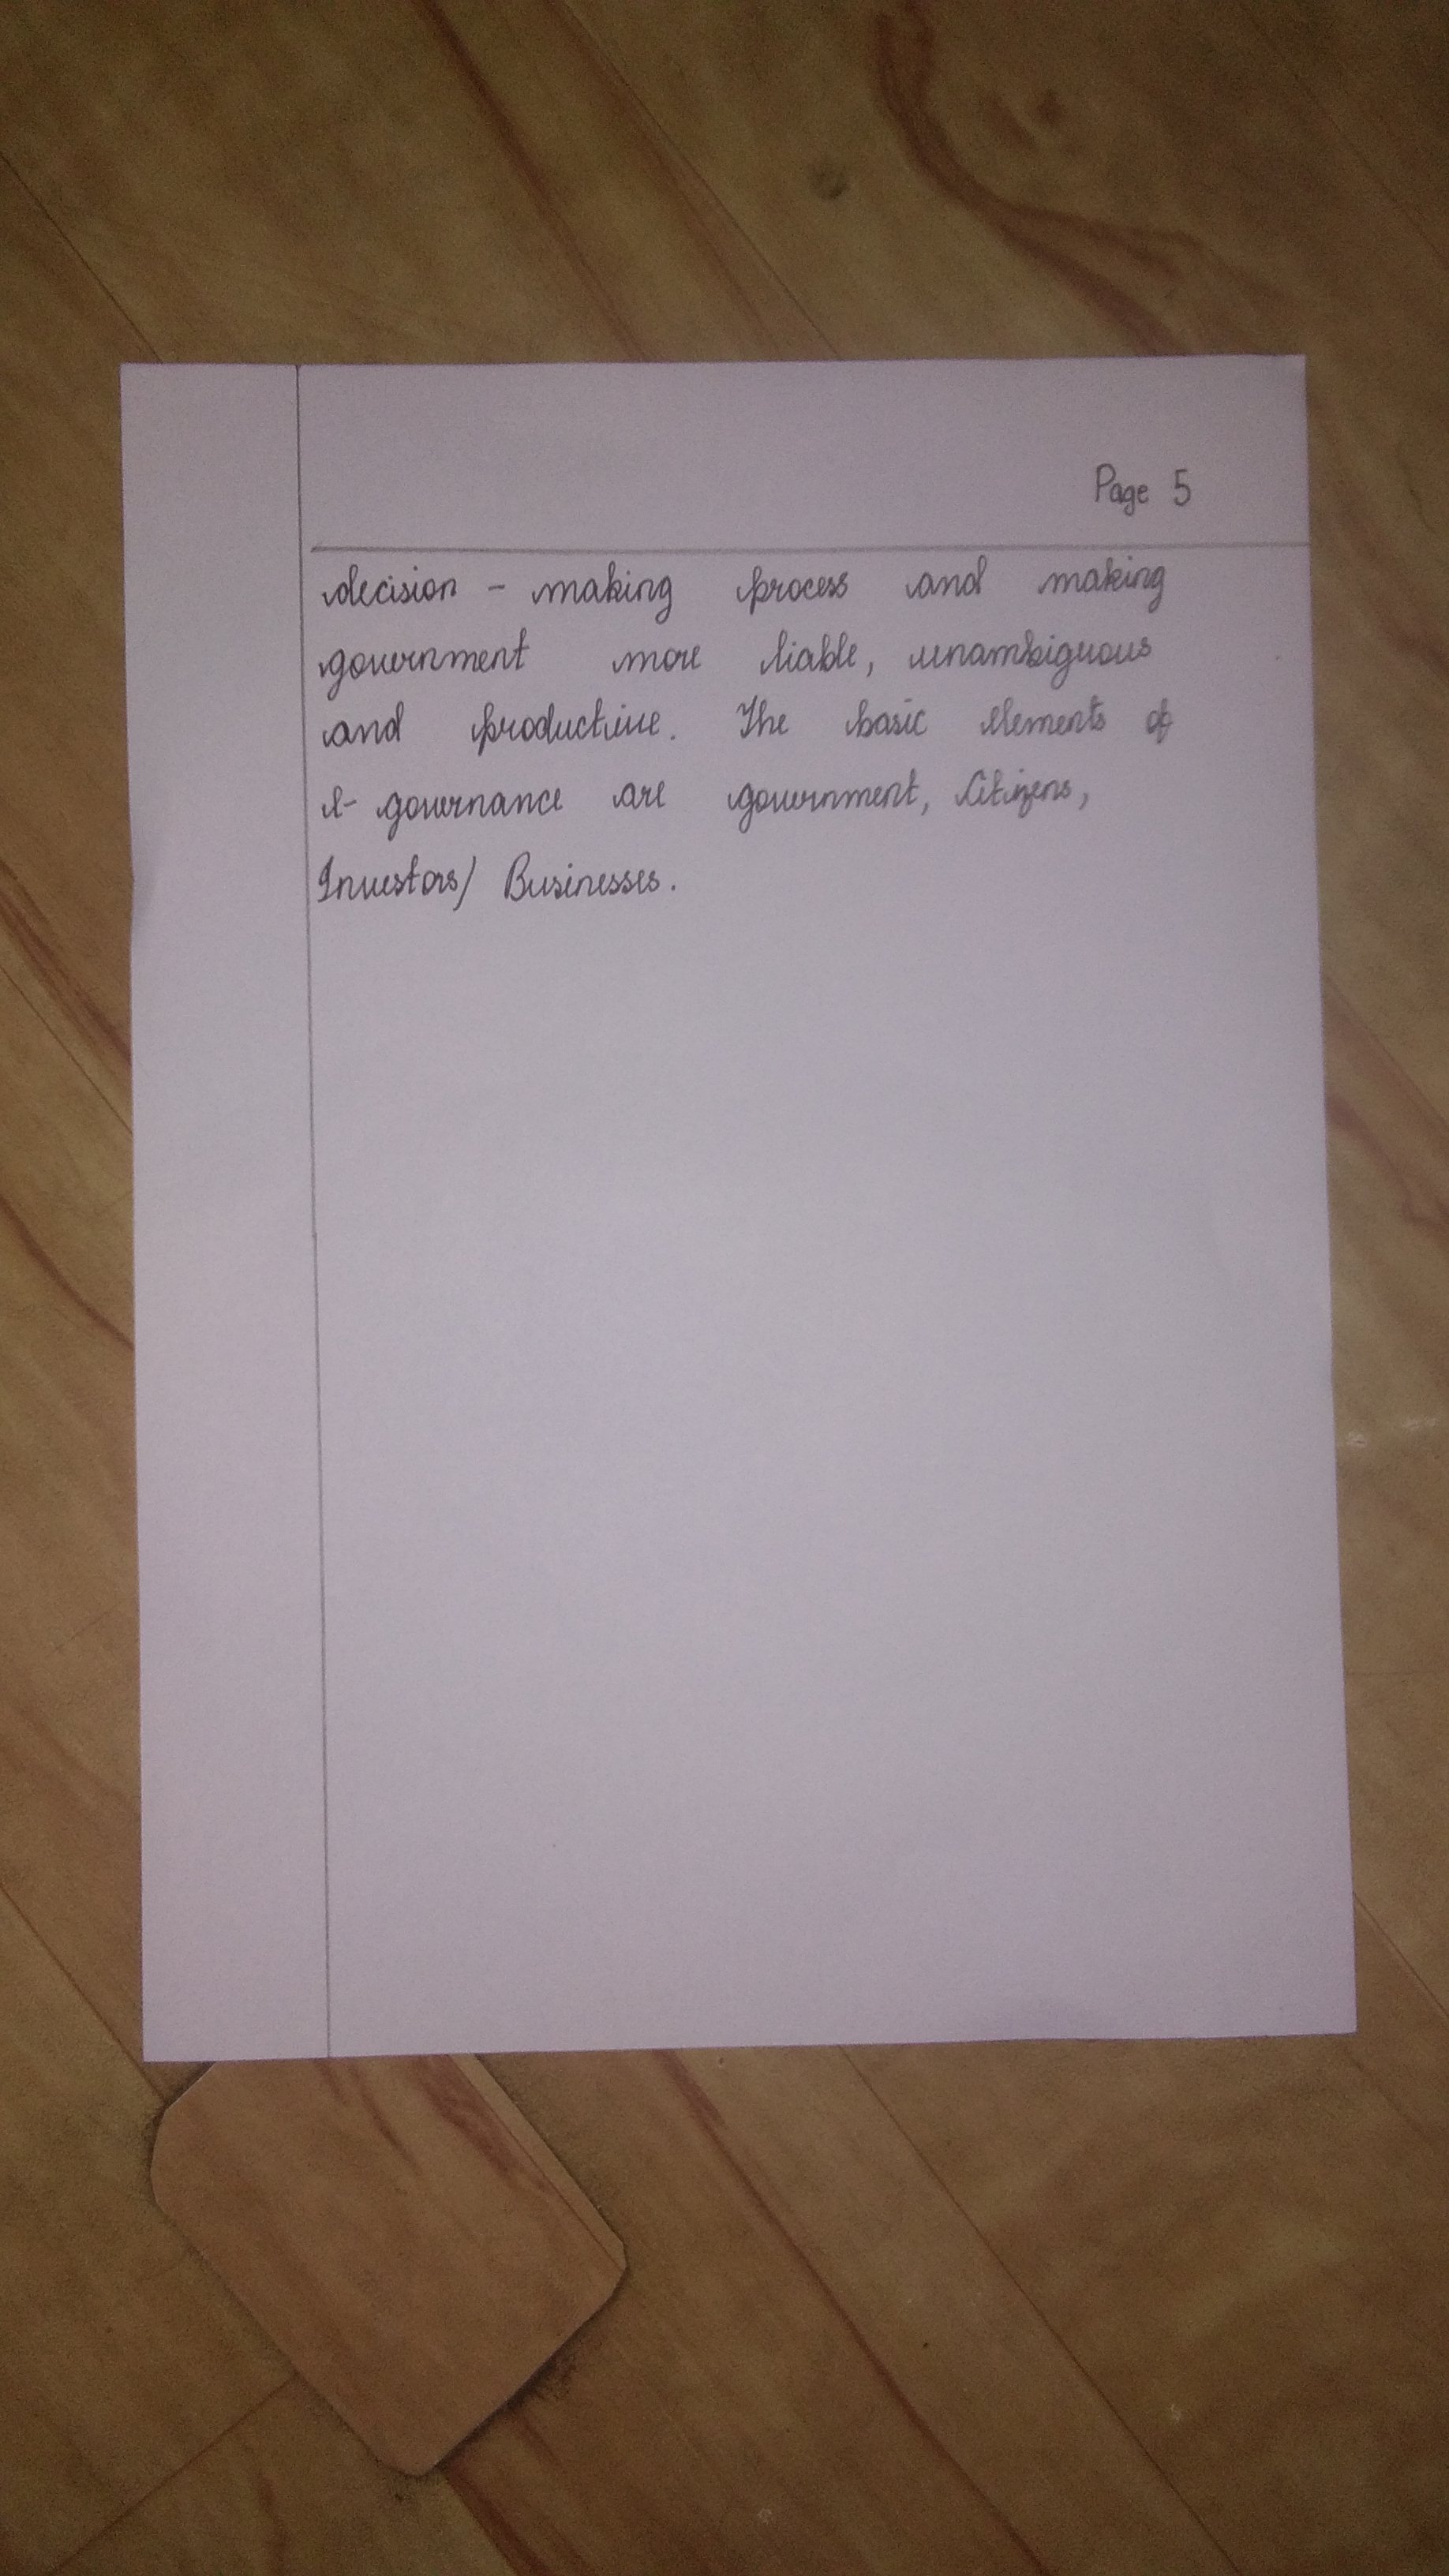 Page 5
decision - making process and making
government more liable, unambiguous
and productive. The basic elements of
e- governance are government, Citizens,
Investors/ Businesses.